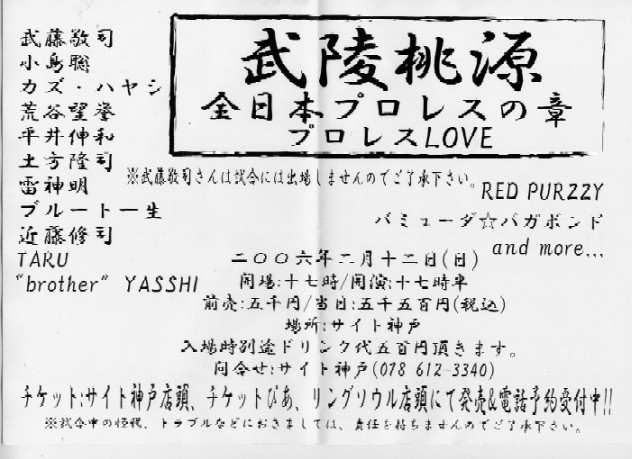 武藤敬司
小島聡
カズ・ハヤシ
荒谷望誉
平井伸和
土方隆司
雷神明
ブルート一生
近藤修司
TARU
"brother" YASSHI
武陵桃源
全日本プロレスの章
プロレスLOVE
※武藤敬司さんは試合には出場しませんのでご了承下さい。
RED PURZZY
バミューダ☆バガボンド
and more...
二〇〇六年二月十二日(日)
開場:十七時/開演:十七時半
前売:五千円/当日:五千五百円(税込)
場所:サイト神戸
入場時別途ドリンク代五百円頂きます。
問合せ:サイト神戸(078 612-3340)
チケット:サイト神戸店頭、チケットぴあ、リングソウル店頭にて発売&電話予約受付中!!
※試合中の怪我、トラブルなどにおきましては、責任を持ちませんのでご了承下さい。